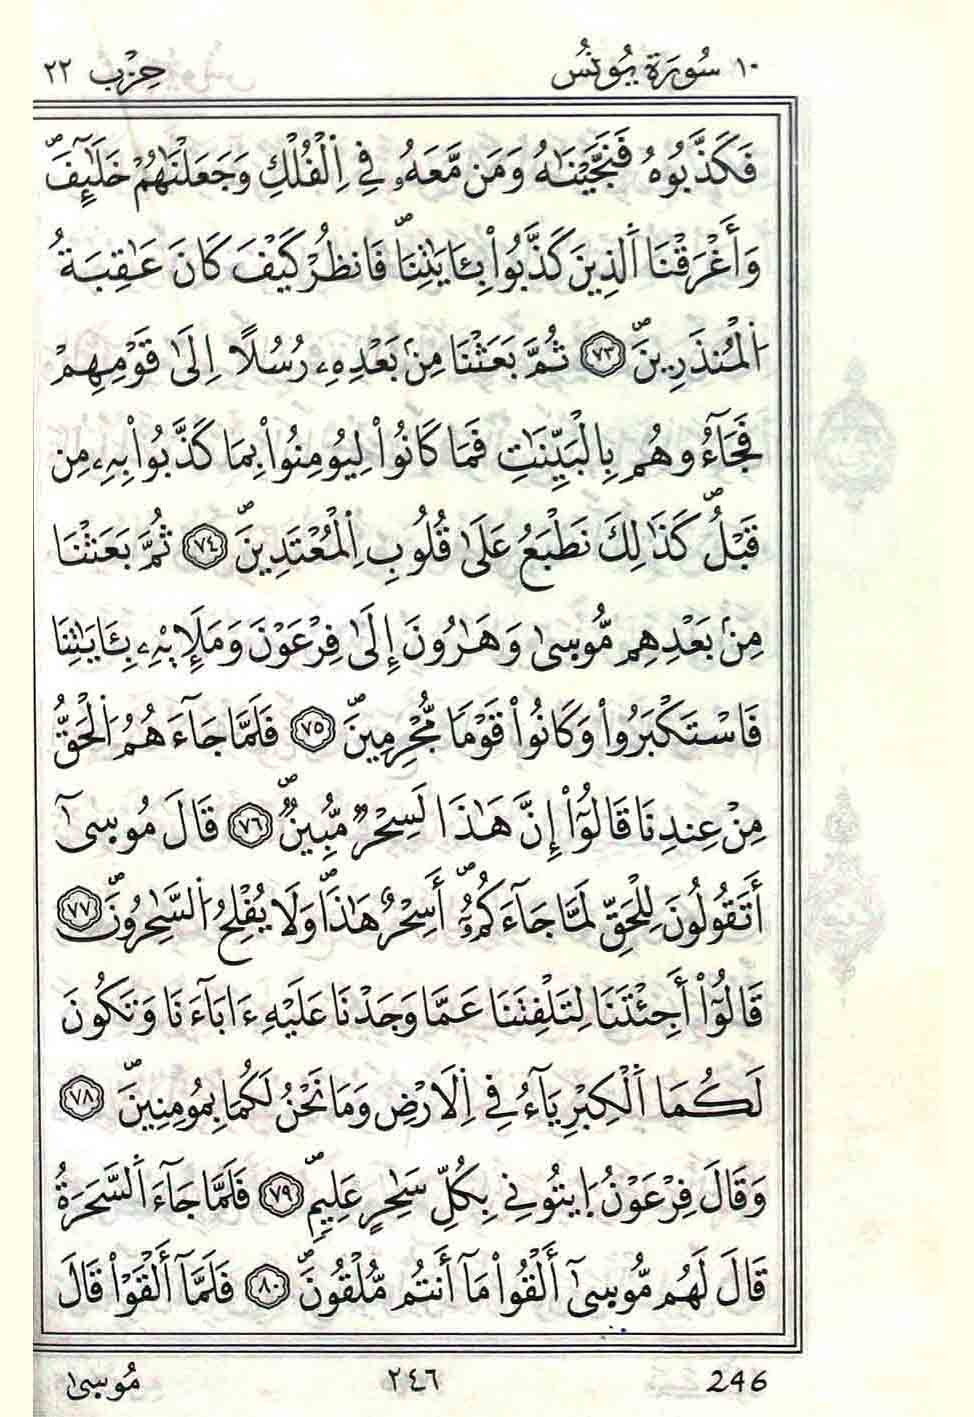 ١٠ سُورَة يُونُس حِزْب ٢٢
فَكَذَّبُوهُ فَنَجَّيْنَٰهُ وَمَن مَّعَهُۥ فِے اِ۬لْفُلْكِ وَجَعَلْنَٰهُمْ خَلَٰٓئِفَۖ
وَأَغْرَقْنَا اَ۬لذِينَ كَذَّبُواْ بِـَٔايَٰتِنَاۖ فَانظُرْ كَيْفَ كَانَ عَٰقِبَةُ
اُ۬لْمُنذَرِينَۖ ٧٣ ثُمَّ بَعَثْنَا مِنۢ بَعْدِهِۦ رُسُلًا اِلَىٰ قَوْمِهِمْ
فَجَآءُوهُم بِالْبَيِّنَٰتِ فَمَا كَانُواْ لِيُومِنُواْ بِمَا كَذَّبُواْ بِهِۦ مِن
قَبْلُۖ كَذَٰلِكَ نَطْبَعُ عَلَىٰ قُلُوبِ اِ۬لْمُعْتَدِينَۖ ٧٤ ثُمَّ بَعَثْنَا
مِنۢ بَعْدِهِم مُّوسىٰ وَهَٰرُونَ إِلَىٰ فِرْعَوْنَ وَمَلَإِيْهِۦ بِـَٔايَٰتِنَا
فَاسْتَكْبَرُواْ وَكَانُواْ قَوْمًا مُّجْرِمِينَۖ ٧٥ فَلَمَّا جَآءَهُمُ اُ۬لْحَقُّ
مِنْ عِندِنَا قَالُوٓاْ إِنَّ هَٰذَا لَسِحْرٌ مُّبِينٌۖ ٧٦ قَالَ مُوسىٰٓ
أَتَقُولُونَ لِلْحَقِّ لَمَّا جَآءَكُمُۥٓۖ أَسِحْرٌ هَٰذَاۖ وَلَا يُفْلِحُ اُ۬لسَّٰحِرُونَۖ ٧٧
قَالُوٓاْ أَجِئْتَنَا لِتَلْفِتَنَا عَمَّا وَجَدْنَا عَلَيْهِ ءَابَآءَنَا وَتَكُونَ
لَكُمَا اَ۬لْكِبْرِيَآءُ فِے اِ۬لَارْضِ وَمَا نَحْنُ لَكُمَا بِمُومِنِينَۖ ٧٨
وَقَالَ فِرْعَوْنُ اُ۪يتُونِے بِكُلِّ سَٰحِرٍ عَلِيمٍۖ ٧٩ فَلَمَّا جَآءَ اَ۬لسَّحَرَةُ
قَالَ لَهُم مُّوسىٰٓ أَلْقُواْ مَآ أَنتُم مُّلْقُونَۖ ٨٠ فَلَمَّآ أَلْقَوْاْ قَالَ
246 ٢٤٦ مُوسىٰ